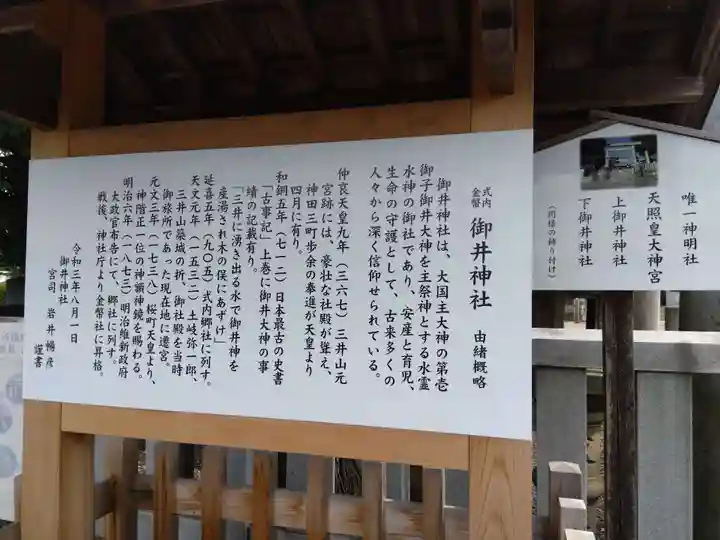 式内
金幣
御井神社
由緒概略
御井神社は、大国主大神の第壱
御子御井大神を主祭神とする水霊
水神の御社であり、安産と育児、
生命の守護として、古来多くの
人々から深く信仰せられている。
仲哀天皇九年（三六七）三井山元
宮跡には、豪壮な社殿が聳え、
神田三町歩余の奉進が天皇より
四月に有り。
和銅五年（七一二）日本最古の史書
「古事記」上巻に御井大神の事
績の記載有り。
「三井に湧き出る水で御井神を
産湯され木の俣にあずけ」
延喜五年（九〇五）式内郷社に列す。
天文元年（一五三二）土岐弥一郎、
三井山築城の折、御社殿を当時
御旅所であった現在地に遷宮。
元文三年（一七三八）桜町天皇より、
神階正一位の神額神鏡を賜わる。
明治六年（一八七三）明治維新政府
太政官布告にて、郷社に列す。
戦後、神社庁より金幣社に昇格。
令和三年八月一日
御井神社
宮司 岩井暢彦
謹書
唯一神明社
天照皇大神宮
上御井神社
下御井神社
（同様の飾り付け）